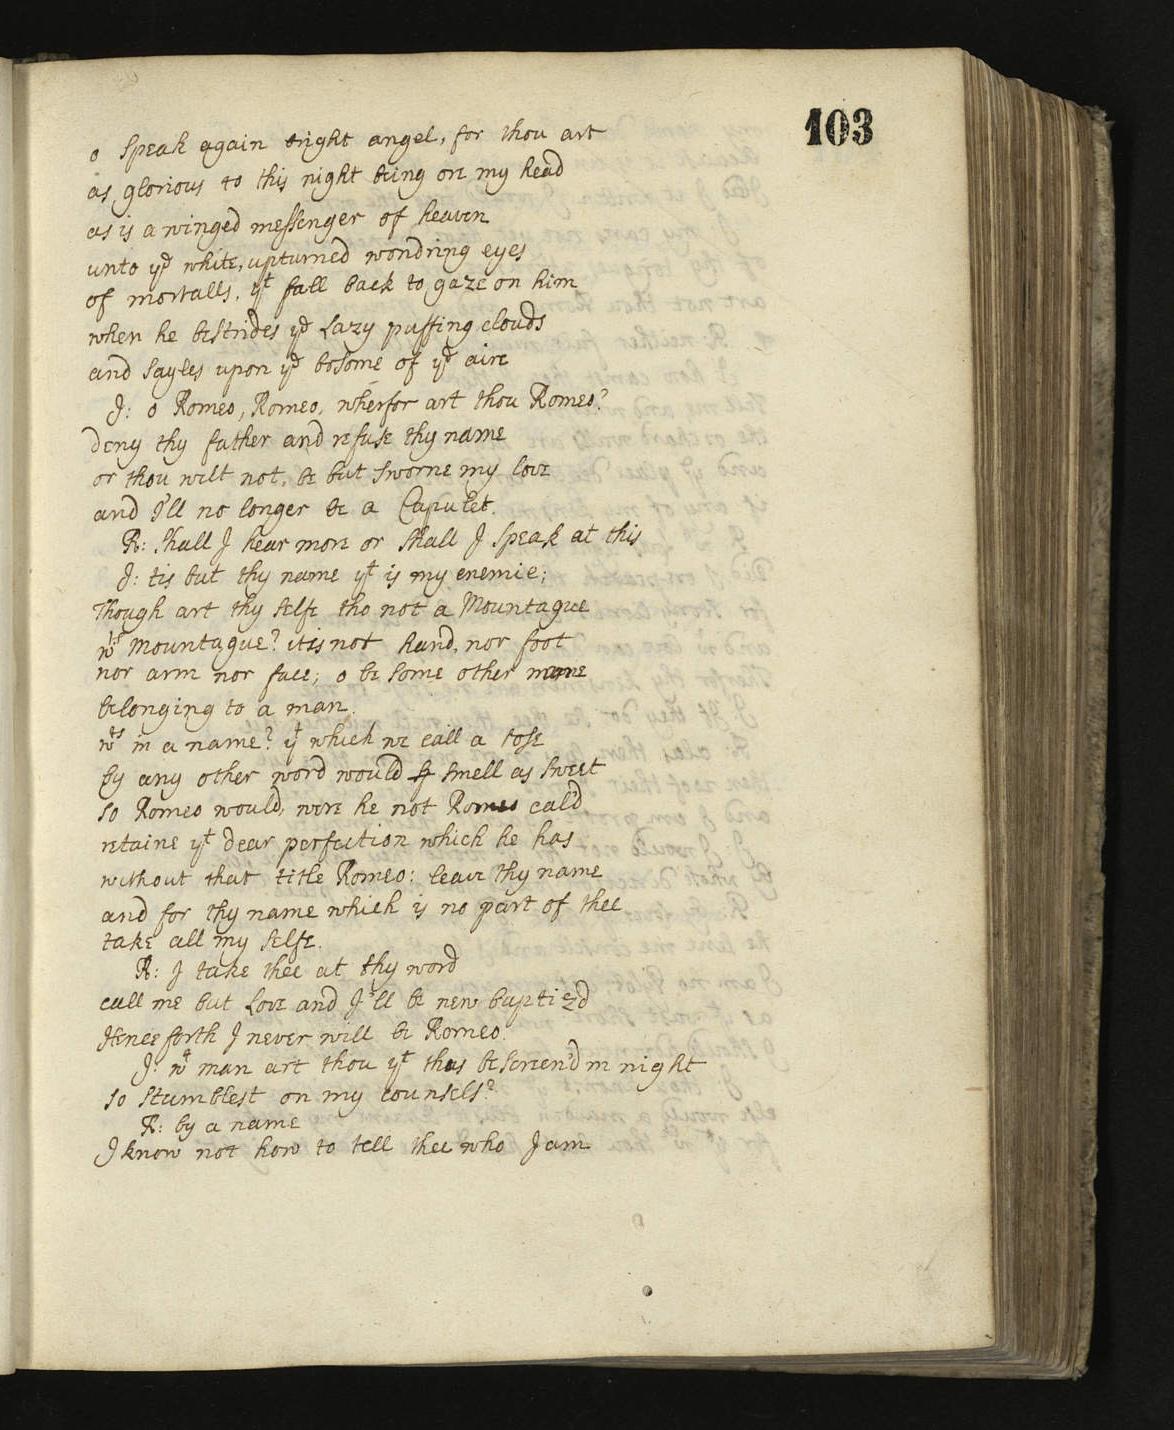 103
o speak again bright angel, for thou art
as glorious to this night being ore my head
as is a winged messenger of heaven
unto yᵉ white, upturned wondring eyes
of mortalls, yᵗ fall back to gaze on him
when he bestrides yᵉ Lazy puffing clouds
and sayles upon yᵉ bosome of yᵉ aire
J: o Romeo, Romeo, wherfor art thou Romeo?
deny thy father and refuse thy name
or thou wilt not, be but sworne my love
and I'll no longer be a Capulet.
R: shall J hear more or shall J speak at this
J: tis but thy name yᵗ is my enemie;
Though art thy selfe tho not a Mountague
wᵗˢ Mountague? itis not hand, nor foot
nor arm nor face; o be some other name
belonging to a man.
wᵗˢ in a name? yᵗ which we call a rose
by any other word would smell as sweet
so Romeo would, were he not Romeo cal'd
retaine yᵗ dear perfection which he has
without that title Romeo: leave thy name
and for thy name which is no part of thee
take all my selfe.
R: J take thee at thy word
call me but Love and J'll be new baptiz'd
Henceforth J never will be Romeo.
J: wᵗ man art thou yᵗ thus bescreen'd in night
so stumblest on my counsels?
R: by a name
J know not how to tell thee who J am